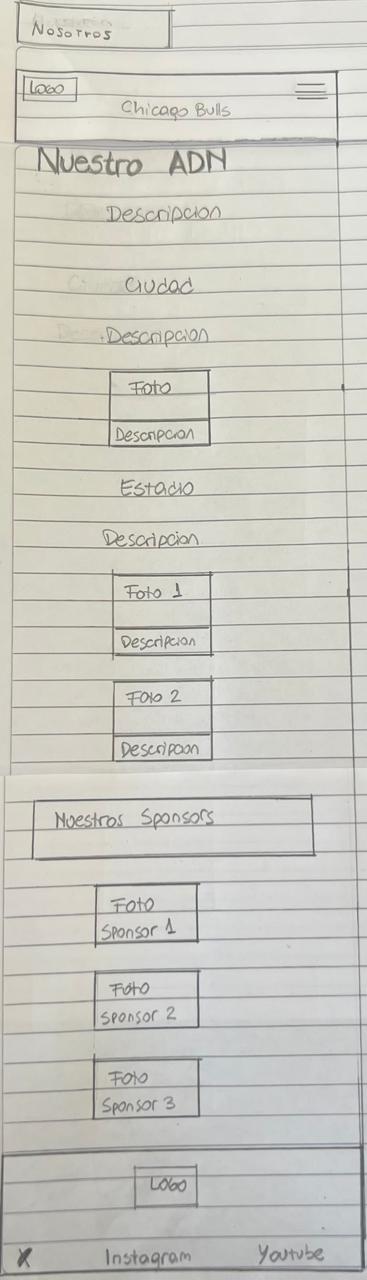 Nosotros
Logo
Chicago Bulls
Nuestro ADN
Descripcion
Ciudad
Descripcion
Foto
Descripcion
Estadio
Descripcion
Foto 1
Descripcion
Foto 2
Descripcion
Nuestros Sponsors
Foto
Sponsor 1
Foto
Sponsor 2
Foto
Sponsor 3
Logo
X Instagram Youtube